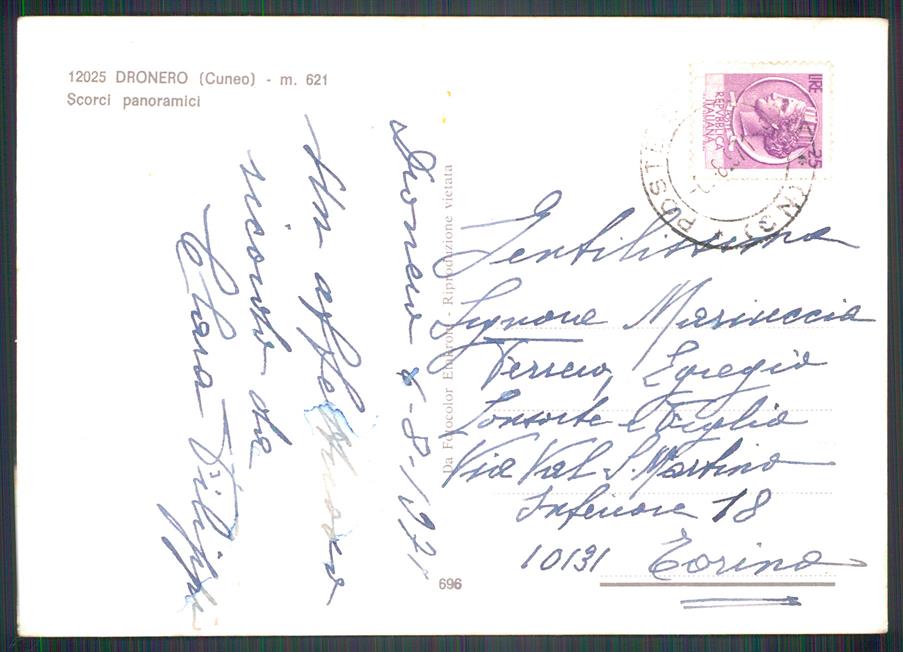 12025 DRONERO (Cuneo) - m. 621
Scorci panoramici
Dronero 6-8-1971
Un affettuoso
ricordo da
Clara Filippi
Da Fotocolor Enkrom - Riproduzione vietata
696
LIRE 25
REPVBBLICA
ITALIANA
POSTE
(N 3)
Gentilissima
Signora Mariuccia
Ferrero, Egregio
Consorte e Figlio
Via Val S. Martino
Inferiore 18
10131 Torino